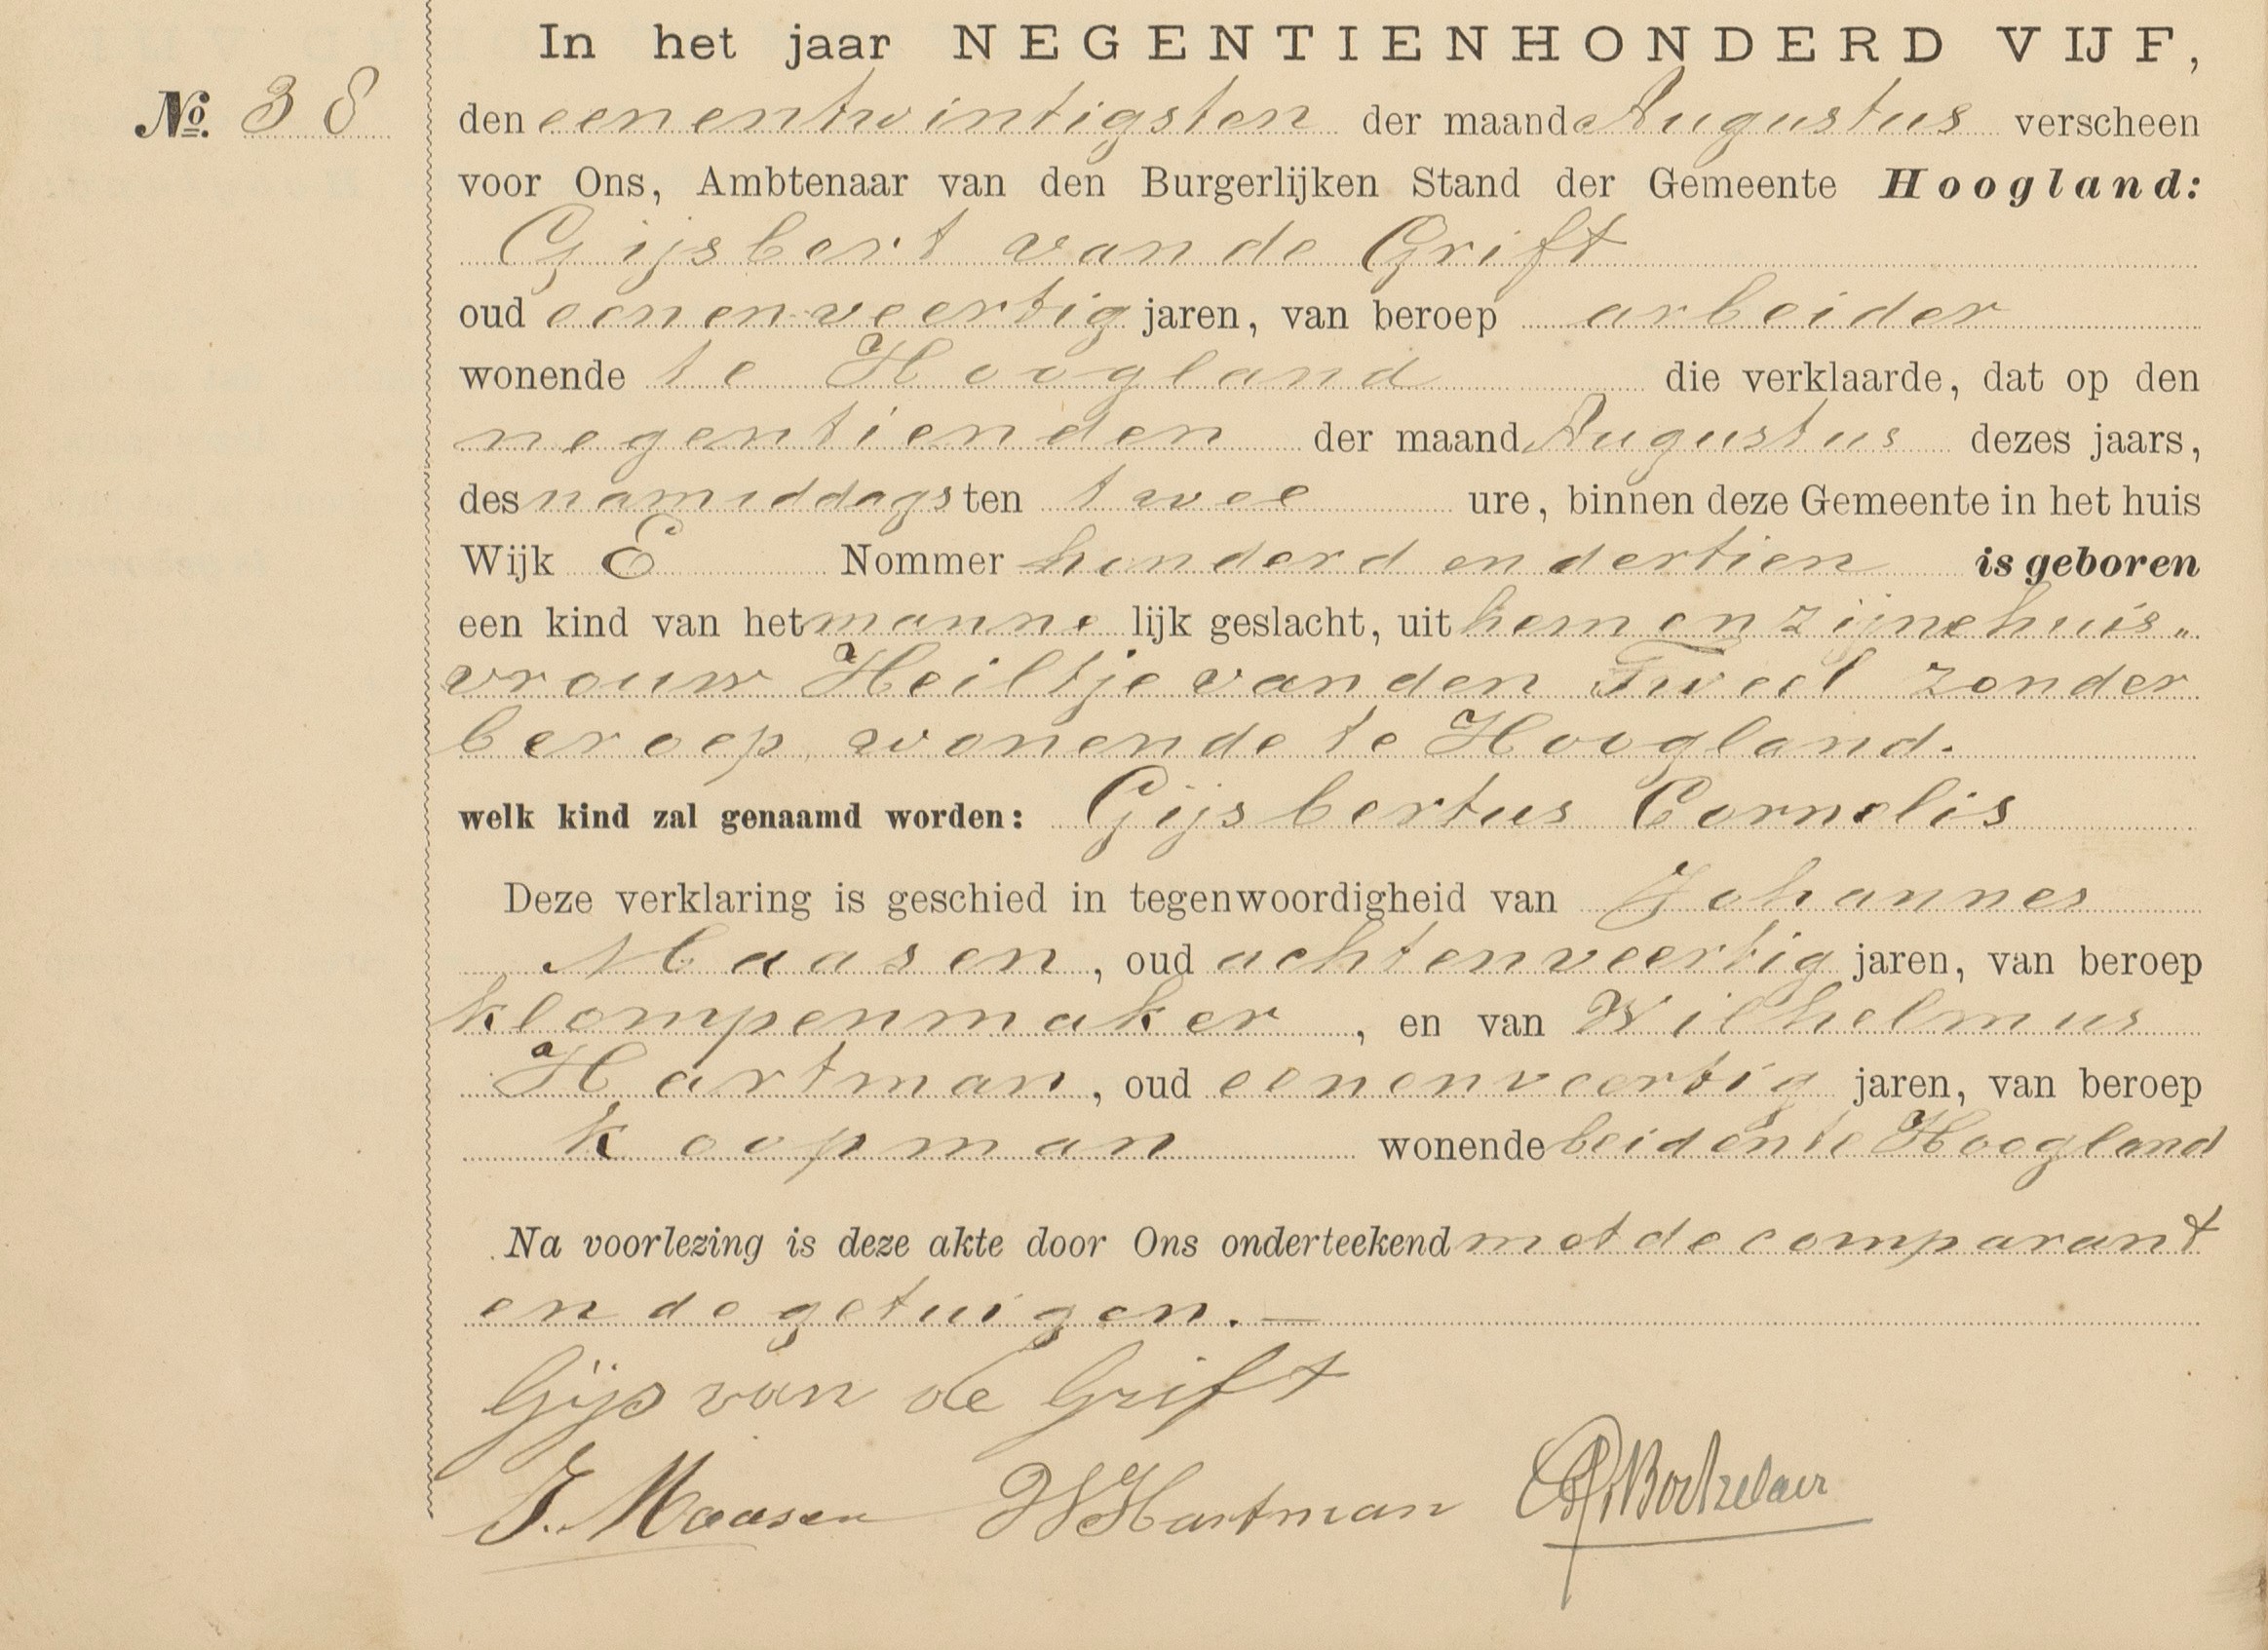 In het jaar NEGENTIENHONDERD VIJF,
No. 38
den eenentwintigsten der maand Augustus verscheen
voor Ons, Ambtenaar van den Burgerlijken Stand der Gemeente Hoogland:
Gijsbert van de Grift
oud eenenveertig jaren, van beroep arbeider
wonende te Hoogland die verklaarde, dat op den
negentienden der maand Augustus dezes jaars,
des namiddags ten twee ure, binnen deze Gemeente in het huis
Wijk E Nommer honderd en dertien is geboren
een kind van het manne lijk geslacht, uit hem en zijne huis„
vrouw Heiltje van den Tweel zonder
beroep, wonende te Hoogland.
welk kind zal genaamd worden: Gijsbertus Cornelis
Deze verklaring is geschied in tegenwoordigheid van Johannes
Maasen, oud achtenveertig jaren, van beroep
klompenmaker, en van Wilhelmus
Hartman, oud eenenveertig jaren, van beroep
koopman wonende beiden te Hoogland
Na voorlezing is deze akte door Ons onderteekend met de comparant
en de getuigen. —
Gijs van de Grift
J. Maasen WHartman